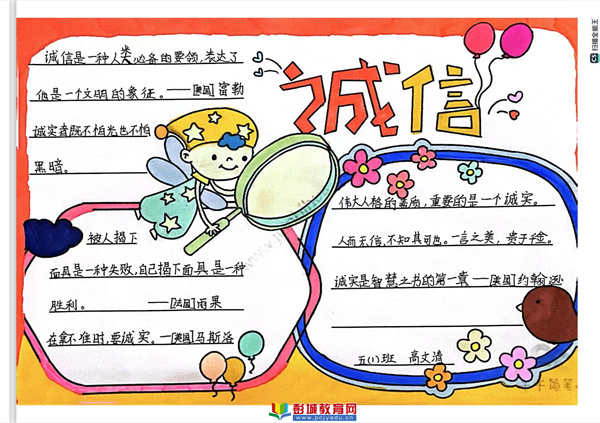 诚信
诚信是一种人类必备的要领,表达了
他是一个文明的象征。——[美国]富勒
诚实者既不怕光也不怕
黑暗。
被人揭下
面具是一种失败,自己揭下面具是一种
胜利。——[法国]雨果
在拿不准时,要诚实。—[美国]马斯洛
伟大人格的素质,重要的是一个诚实。
人而无信,不知其可也。一言之美,贵于千金。
诚实是智慧之书的第一章—[美国]约翰逊
五(1)班 高文清
彭城教育网
www.pcjyedu.cn
扫描全能王